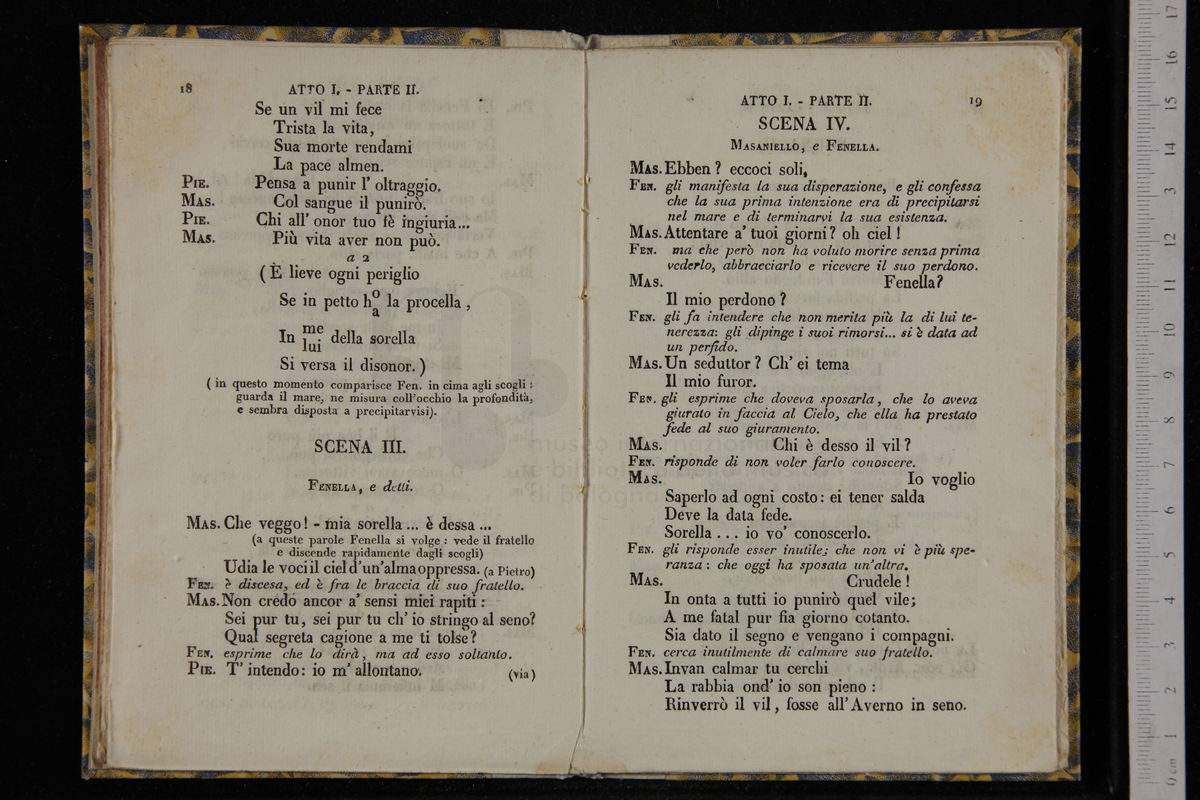 18 ATTO I. - PARTE II.
Se un vil mi fece
Trista la vita,
Sua morte rendami
La pace almen.
PIE. Pensa a punir l' oltraggio.
MAS. Col sangue il punirò.
PIE. Chi all' onor tuo fè ingiuria...
MAS. Più vita aver non può.
a 2
( È lieve ogni periglio
Se in petto h o/a la procella ,
In me/lui della sorella
Si versa il disonor. )
( in questo momento comparisce Fen. in cima agli scogli :
guarda il mare, ne misura coll'occhio la profondità,
e sembra disposta a precipitarvisi).
SCENA III.
FENELLA, e detti.
MAS. Che veggo! - mia sorella ... è dessa ...
(a queste parole Fenella si volge : vede il fratello
e discende rapidamente dagli scogli)
Udia le voci il ciel d'un'alma oppressa. (a Pietro)
FEN. è discesa, ed è fra le braccia di suo fratello.
MAS. Non credo ancor a' sensi miei rapiti :
Sei pur tu, sei pur tu ch' io stringo al seno?
Qual segreta cagione a me ti tolse?
FEN. esprime che lo dirà, ma ad esso soltanto.
PIE. T' intendo: io m' allontano. (via)
ATTO I. - PARTE II. 19
SCENA IV.
MASANIELLO, e FENELLA.
MAS. Ebben ? eccoci soli,
FEN. gli manifesta la sua disperazione, e gli confessa
che la sua prima intenzione era di precipitarsi
nel mare e di terminarvi la sua esistenza.
MAS. Attentare a' tuoi giorni? oh ciel !
FEN. ma che però non ha voluto morire senza prima
vederlo, abbracciarlo e ricevere il suo perdono.
MAS. Fenella?
Il mio perdono ?
FEN. gli fa intendere che non merita più la di lui te-
nerezza: gli dipinge i suoi rimorsi... si è data ad
un perfido.
MAS. Un seduttor ? Ch' ei tema
Il mio furor.
FEN. gli esprime che doveva sposarla, che lo aveva
giurato in faccia al Cielo, che ella ha prestato
fede al suo giuramento.
MAS. Chi è desso il vil ?
FEN. risponde di non voler farlo conoscere.
MAS. Io voglio
Saperlo ad ogni costo: ei tener salda
Deve la data fede.
Sorella . . . io vo' conoscerlo.
FEN. gli risponde esser inutile; che non vi è più spe-
ranza : che oggi ha sposata un'altra.
MAS. Crudele !
In onta a tutti io punirò quel vile;
A me fatal pur fia giorno cotanto.
Sia dato il segno e vengano i compagni.
FEN. cerca inutilmente di calmare suo fratello.
MAS. Invan calmar tu cerchi
La rabbia ond' io son pieno :
Rinverrò il vil, fosse all'Averno in seno.
0 cm 1 2 3 4 5 6 7 8 9 10 11 12 13 14 15 16 17